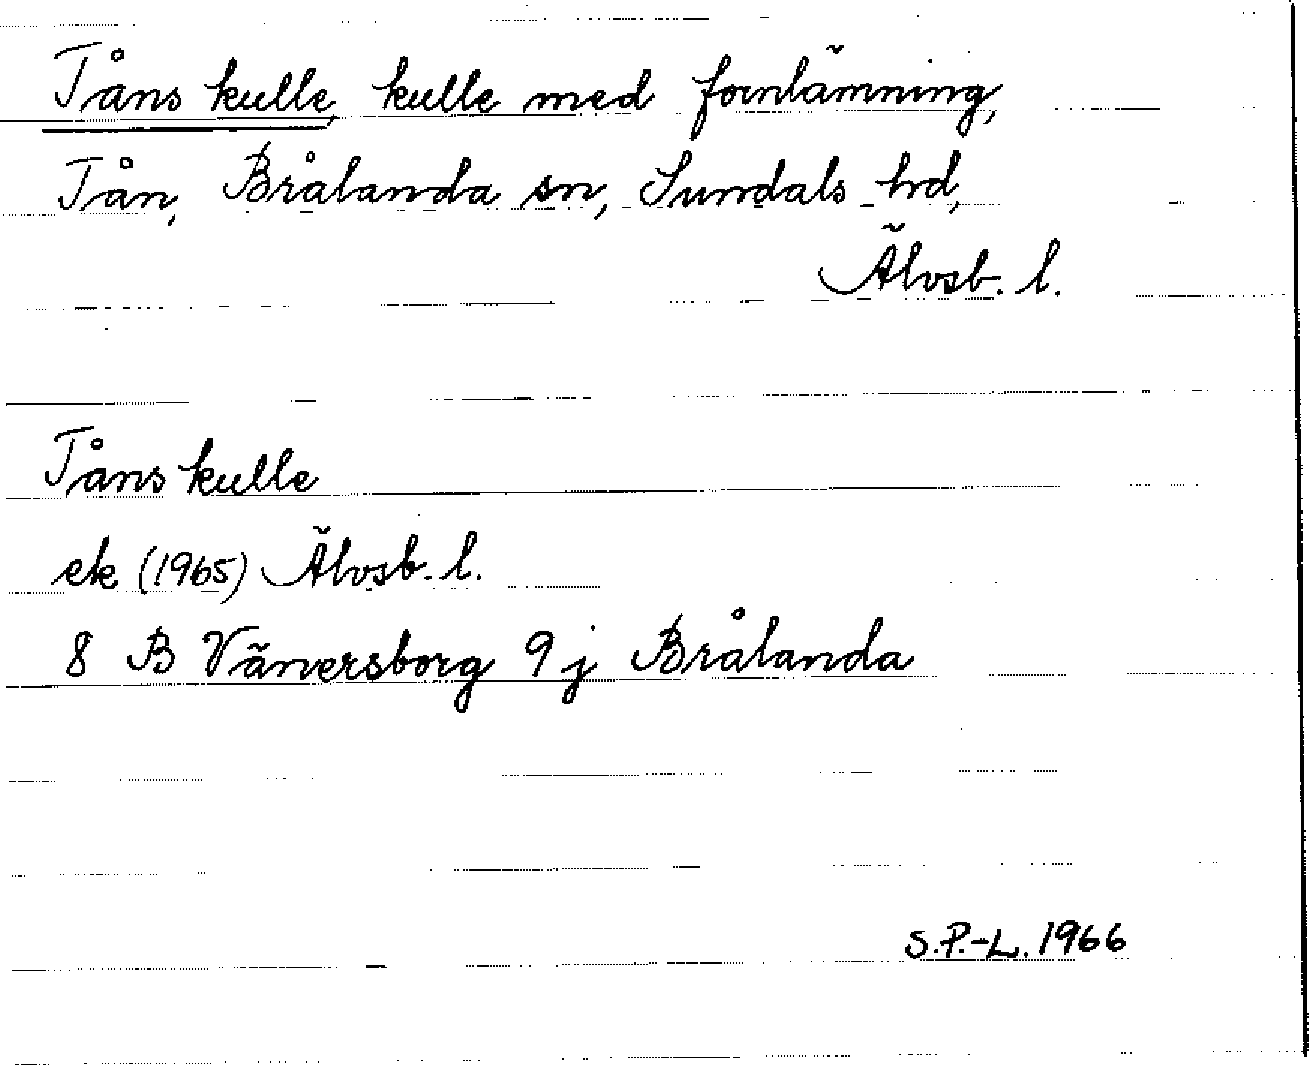 Tåns kulle, kulle med fornlämning,
Tån, Brålanda sn, Sundals hd,
Älvsb. l.
Tåns kulle
ek (1965) Älvsb. l.
8 B Vänersborg 9 j Brålanda
S.P.-L. 1966